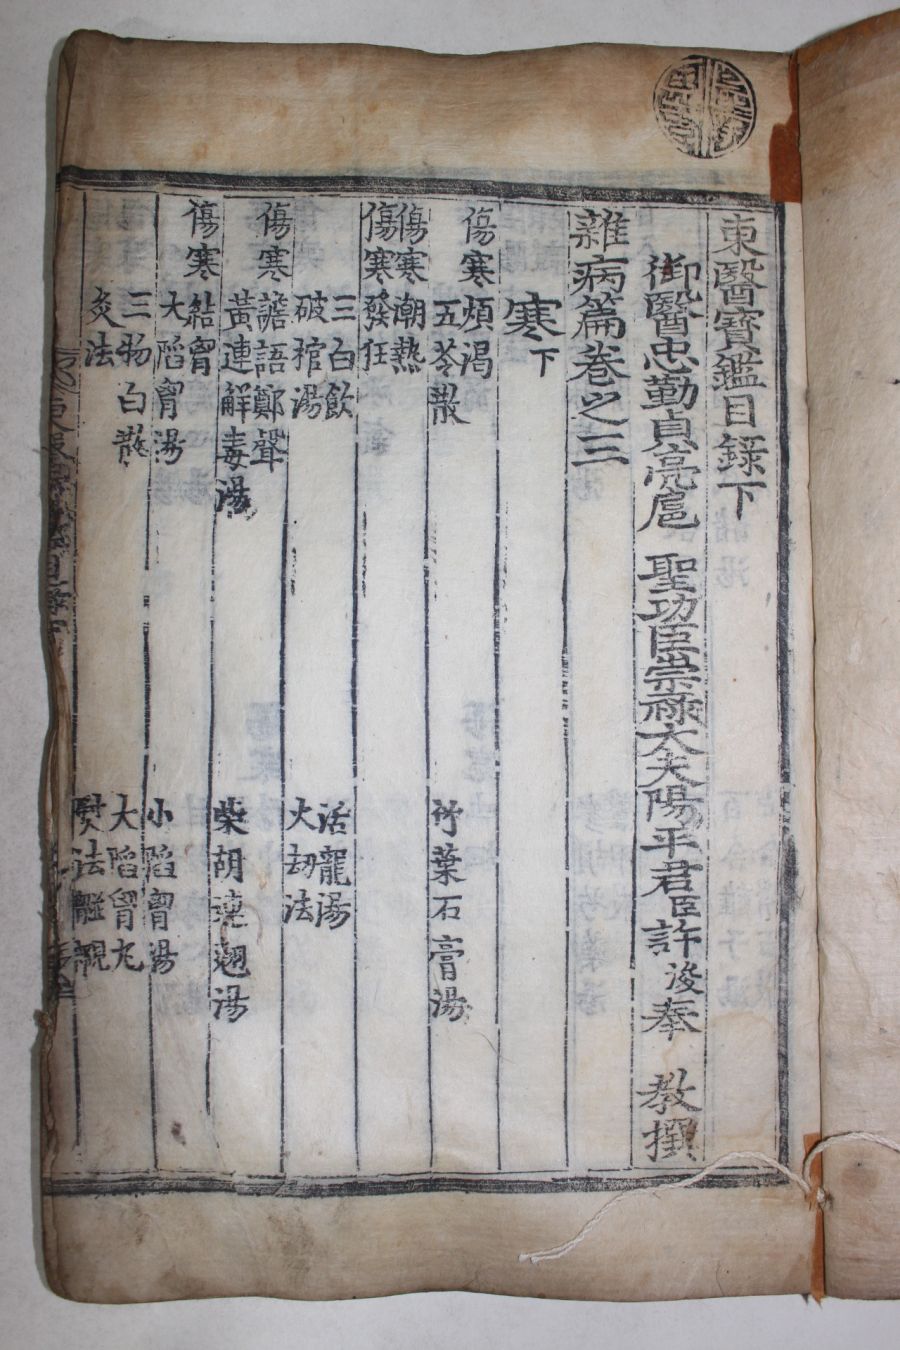 東醫寶鑑目録下
御醫忠勤貞亮扈 聖功臣崇祿大夫陽平君臣許浚奉 教撰
雜病篇卷之三
寒下
傷寒煩渴
五苓散 竹葉石膏湯
傷寒潮熱
傷寒發狂
三白飲 活龍湯
破棺湯 火刼法
傷寒譫語鄭聲
黃連解毒湯 柴胡連翹湯
傷寒結胷
大陷胷湯 小陷胷湯
三物白散 大陷胷丸
灸法 熨法